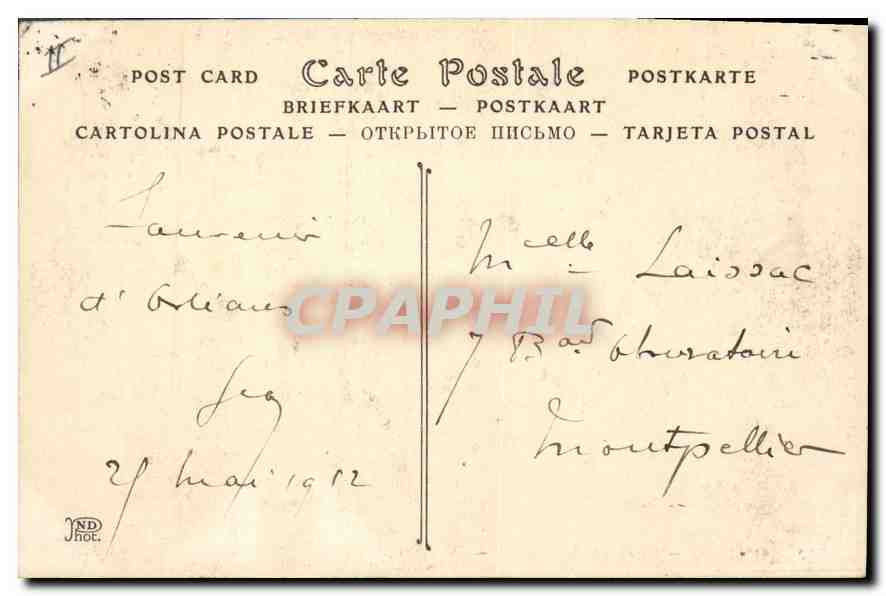 II
POST CARD Carte Postale POSTKARTE
BRIEFKAART — POSTKAART
CARTOLINA POSTALE — ОТКРЫТОЕ ПИСЬМО — TARJETA POSTAL
Souvenir
d'Orléans
25 mai 1912
Melle Laissac
7 Bard
Montpellier
CPAPHIL
ND
Phot.